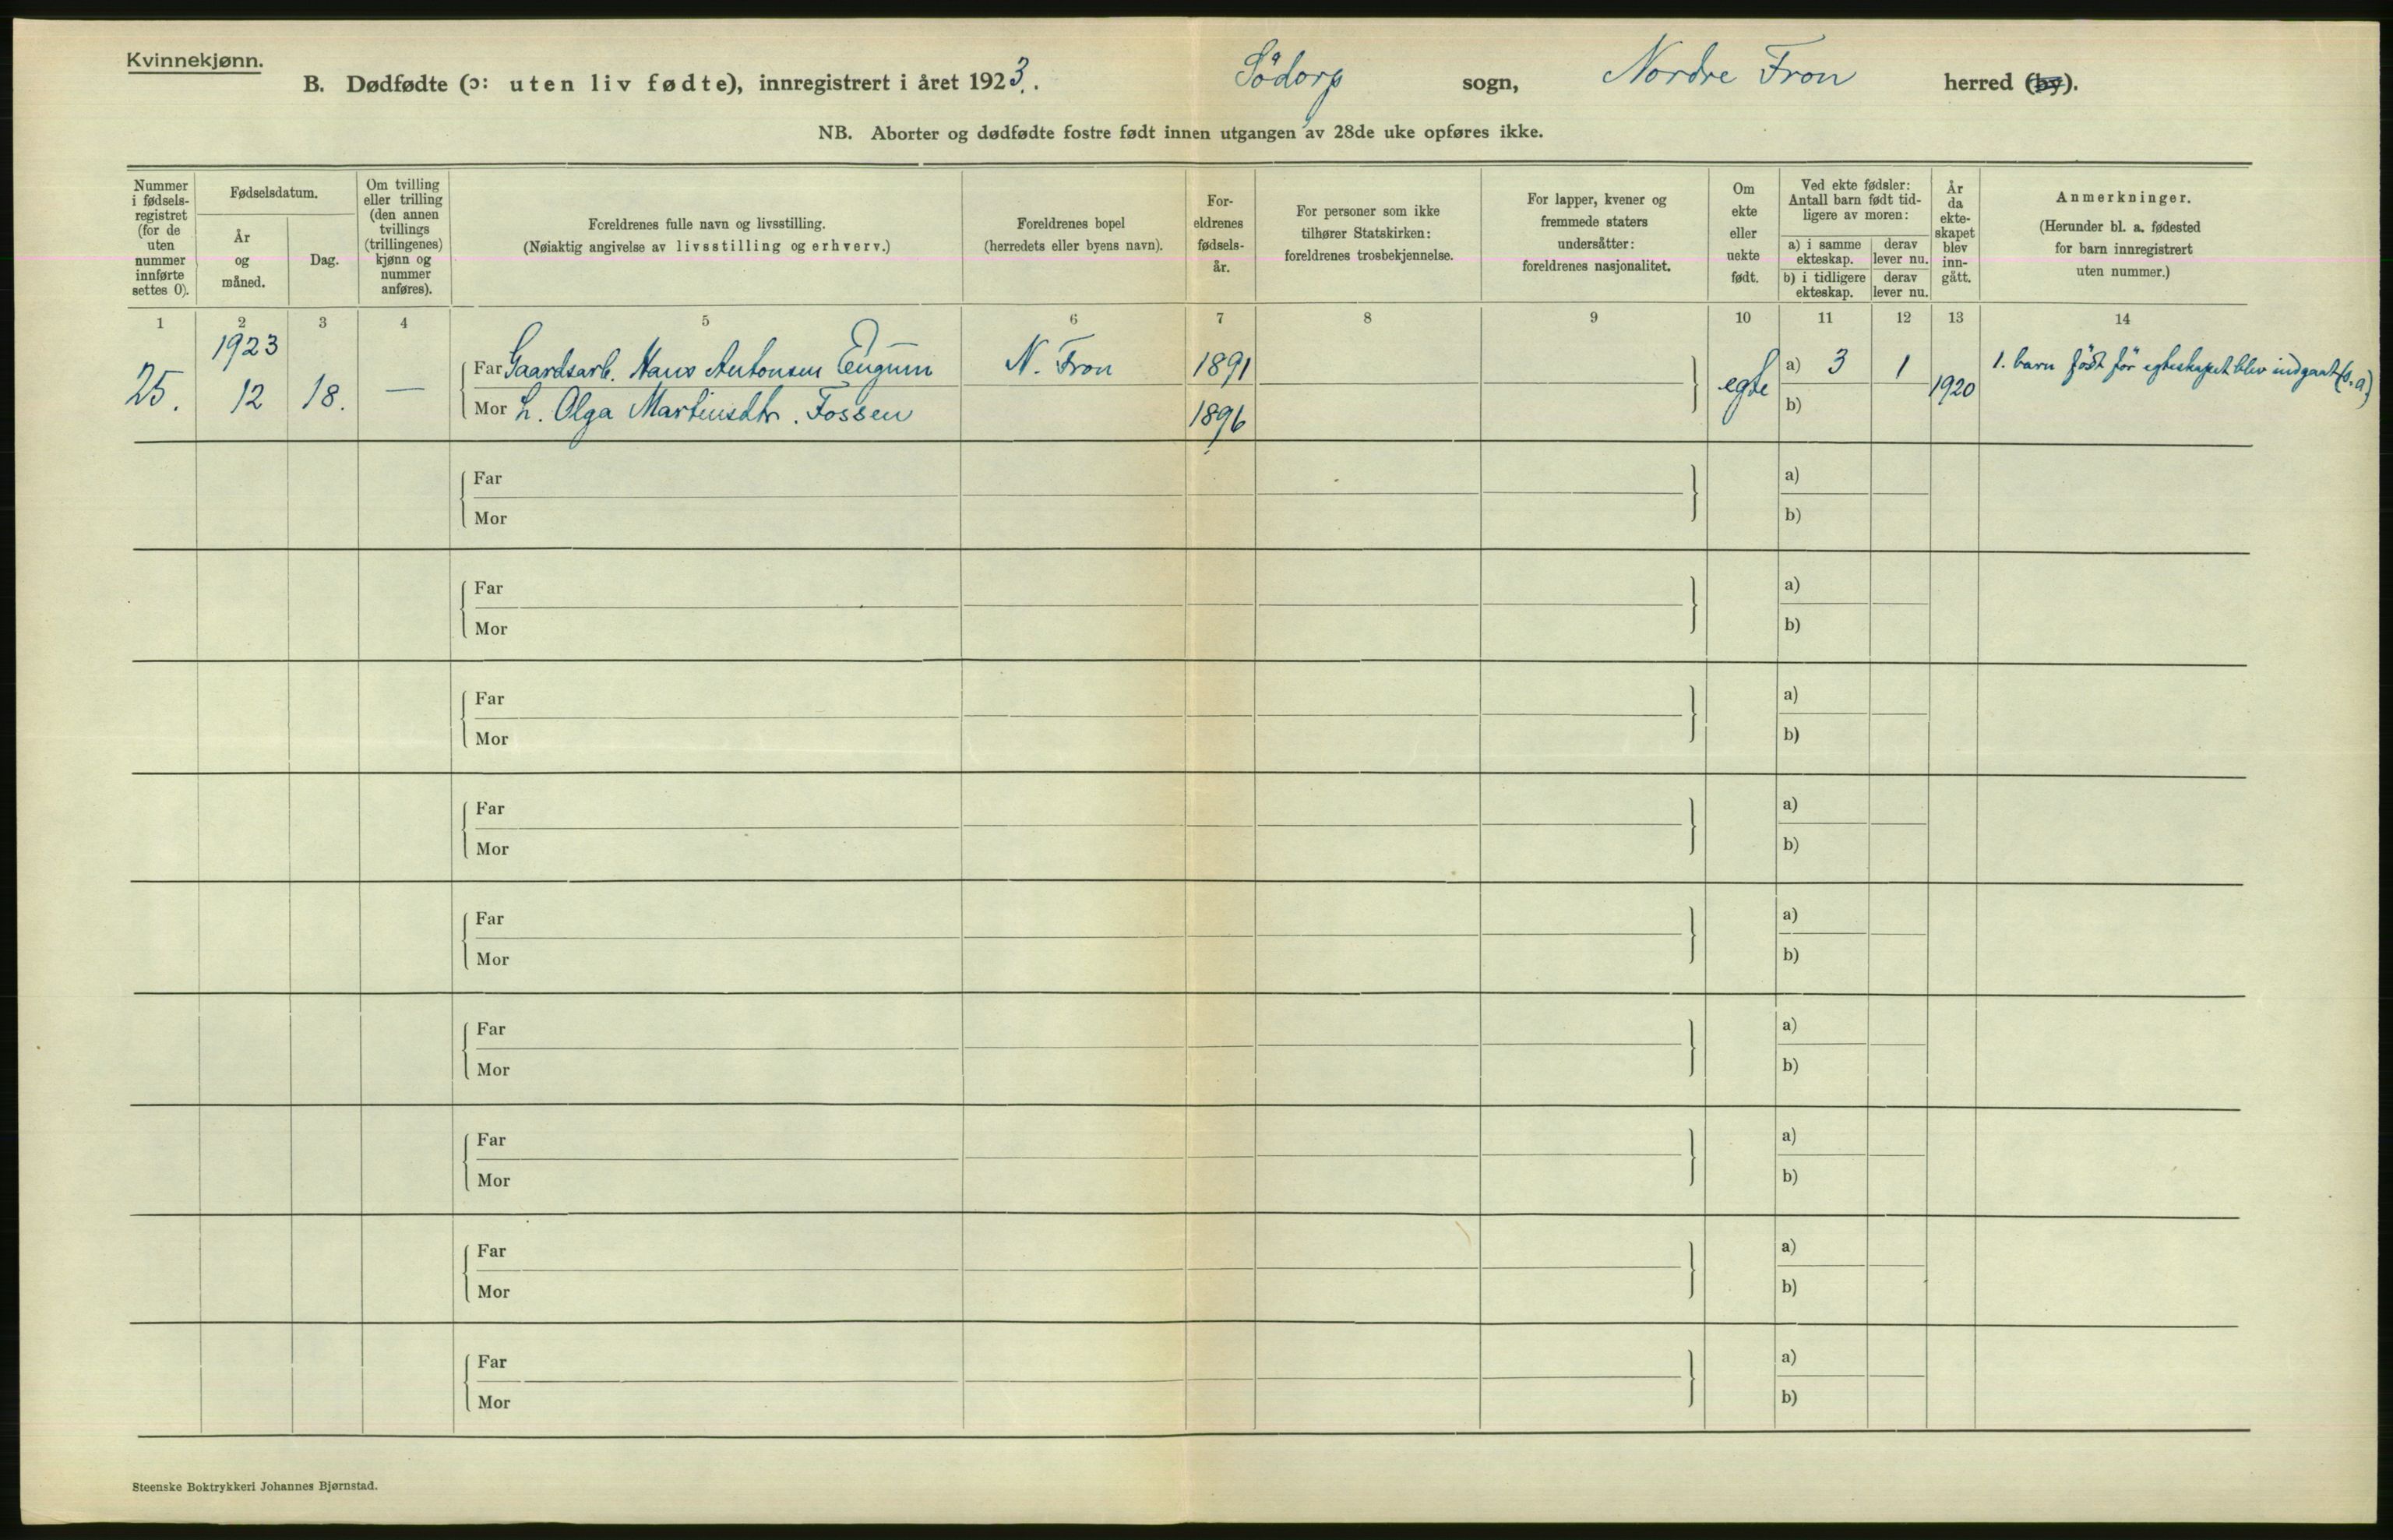 Kvinnekjønn.
B. Dødfødte (ɔ: uten liv fødte), innregistrert i året 1923. Södorp sogn, Nordre Fron herred (by).
NB. Aborter og dødfødte fostre født innen utgangen av 28de uke opføres ikke.
Nummer i fødselsregistret (for de uten nummer innførte settes 0).
Fødselsdatum.
År og måned.
Dag.
Om tvilling eller trilling (den annen tvillings (trillingenes) kjønn og nummer anføres).
Foreldrenes fulle navn og livsstilling.
(Nøiaktig angivelse av livsstilling og erhverv.)
Foreldrenes bopel
(herredets eller byens navn).
Foreldrenes fødselsår.
For personer som ikke tilhører Statskirken: foreldrenes trosbekjennelse.
For lapper, kvener og fremmede staters undersåtter: foreldrenes nasjonalitet.
Om ekte eller uekte født.
Ved ekte fødsler: Antall barn født tidligere av moren:
a) i samme ekteskap.
derav lever nu.
b) i tidligere ekteskap.
derav lever nu.
År da ekteskapet blev inngått.
Anmerkninger.
(Herunder bl. a. fødested for barn innregistrert uten nummer.)
1 2 3 4 5 6 7 8 9 10 11 12 13 14
1923
25. 12 18. —
Far Gaardsarb. Hans Antonsen
N. Fron 1891
egte a) 3 1 1920
1. barn födt för egteskapet blev indgaat
Mor h. Olga Martinsdtr. Fossen
1896
b)
Far a)
Mor b)
Far a)
Mor b)
Far a)
Mor b)
Far a)
Mor b)
Far a)
Mor b)
Far a)
Mor b)
Far a)
Mor b)
Far a)
Mor b)
Far a)
Mor b)
Steenske Boktrykkeri Johannes Bjørnstad.